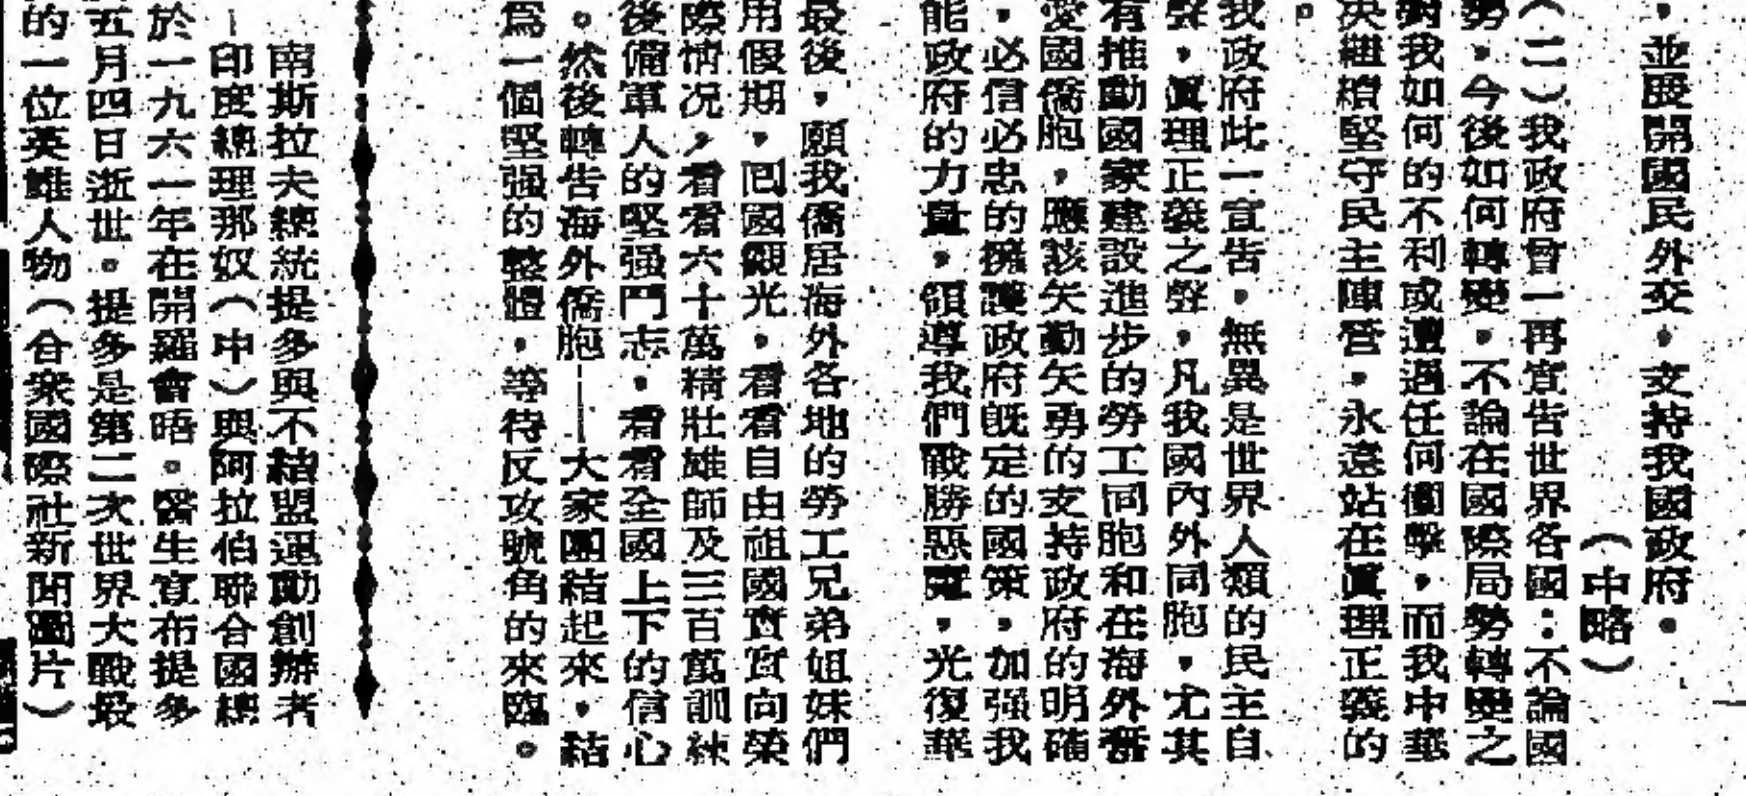 ，並展開國民外交，支持我國政府。
（中略）
（二）我政府曾一再宣告世界各國：不論國
勢，今後如何轉變，不論在國際局勢轉變之
對我如何的不利或遭遇任何衝擊，而我中華
決繼續堅守民主陣營，永遠站在眞理正義的
。
我政府此一宣告，無異是世界人類的民主自
聲，眞理正義之聲，凡我國內外同胞，尤其
有推動國家建設進步的勞工同胞和在海外奮
愛國僑胞，應該矢勤矢勇的支持政府的明確
，必信必忠的擁護政府既定的國策，加强我
能政府的力量，領導我們戰勝惡魔，光復華
最後，願我僑居海外各地的勞工兄弟姐妹們
用假期，回國觀光，看看自由祖國實實向榮
際情況，看看六十萬精壯雄師及三百萬訓練
後備軍人的堅强鬥志，看看全國上下的信心
。然後轉告海外僑胞——大家團結起來，結
爲一個堅强的整體，等待反攻號角的來臨。
南斯拉夫總統提多與不結盟運動創辦者
－印度總理那奴（中）與阿拉伯聯合國總
於一九六一年在開羅會晤。醫生宣布提多
五月四日逝世。提多是第二次世界大戰最
的一位英雄人物（合衆國際社新聞圖片）